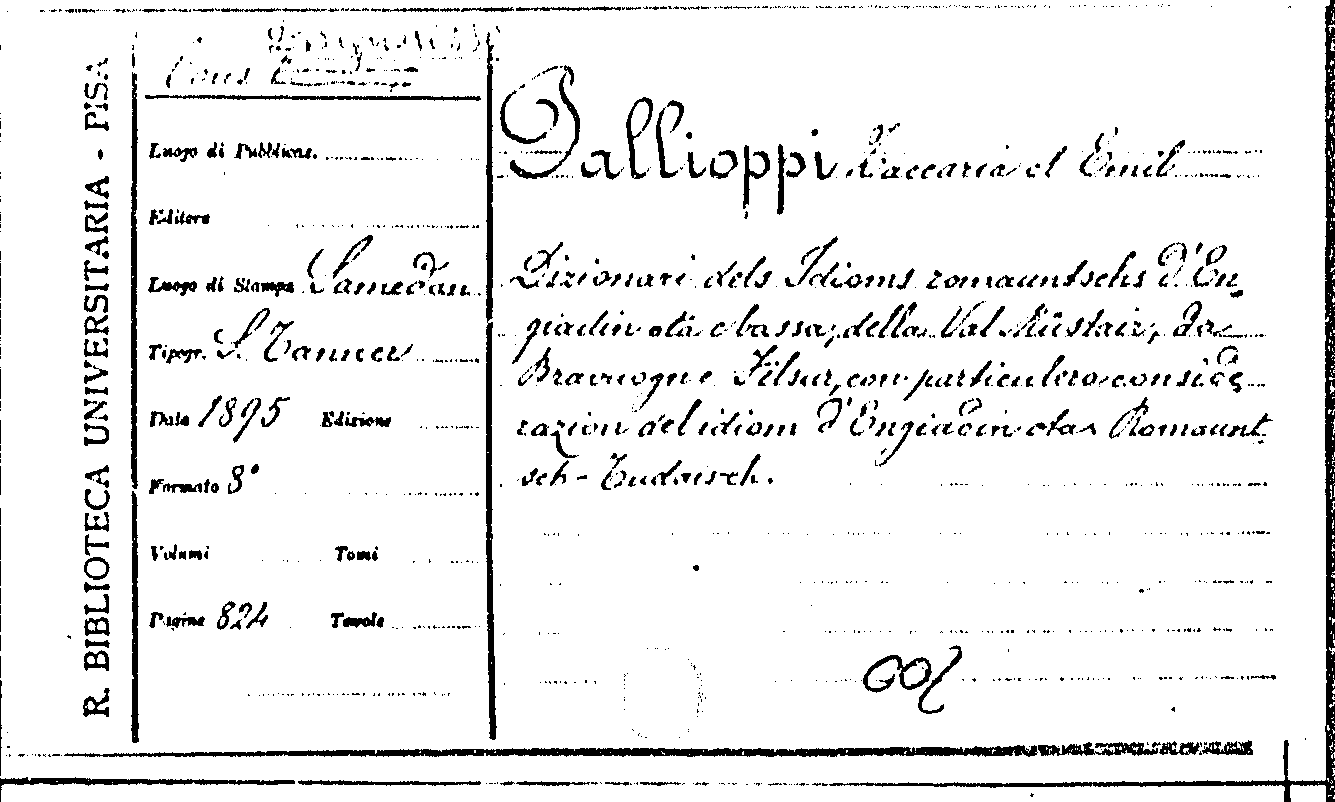 R. BIBLIOTECA UNIVERSITARIA - PISA
Cons
Luogo di Pubblicaz.
Editore
Luogo di Stampa Samedan
Tipogr. S. Tanner
Data 1895 Edizione
Formato 8°
Volumi Tomi
Pagine 824 Tavole
Pallioppi Zaccaria et Emil
Dizionari dels Idioms romauntschs d'En-
giadin ota e bassa, della Val Müstair, da
Bravuogn e Filsur, con particulera conside-
razion del idiom d'Engiadin ota. Romaunt-
sch-Tudaisch.